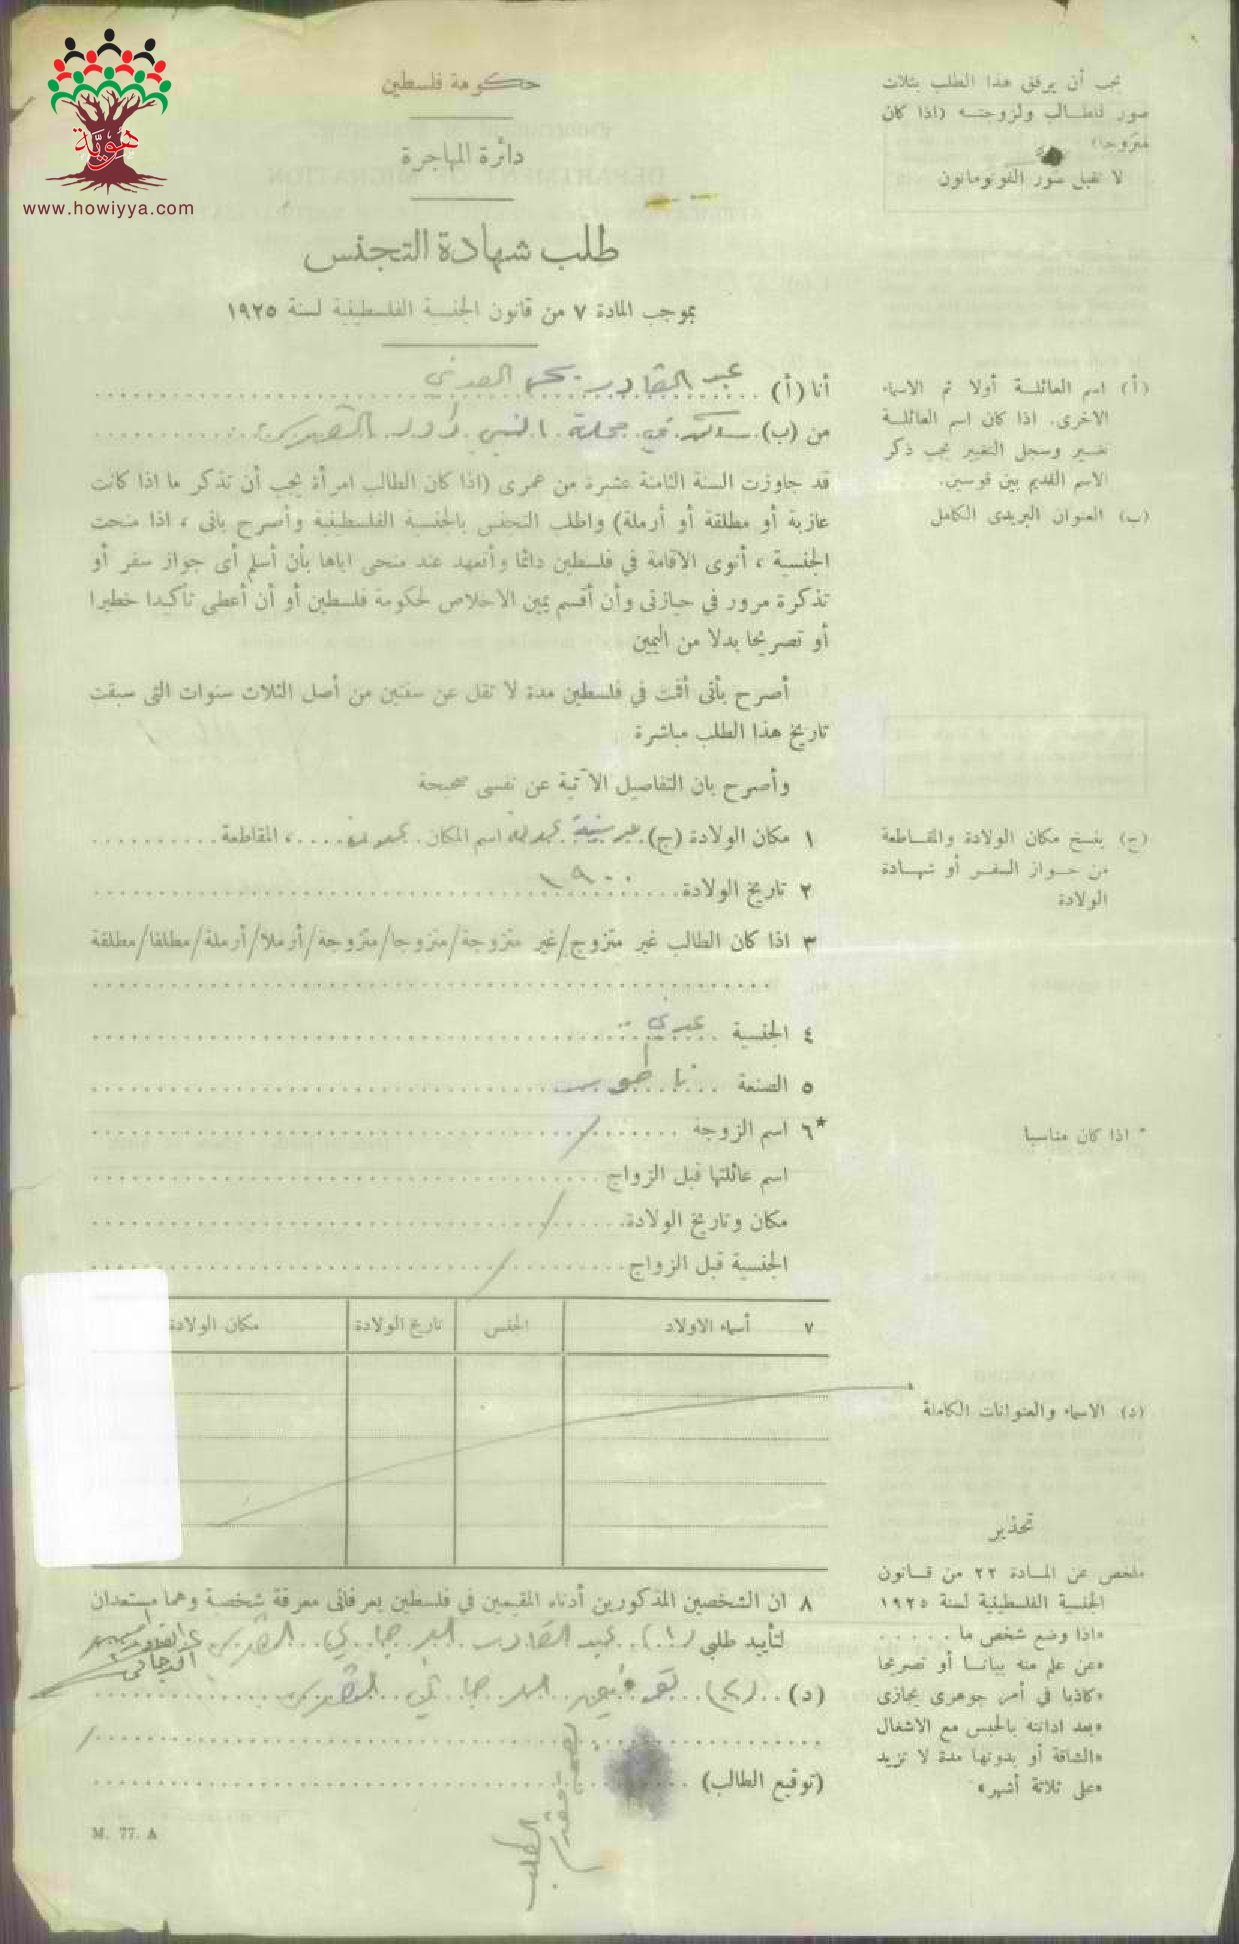 هوية
www.howiyya.com
حكومة فلسطين
دائرة المهاجرة
طلب شهادة التجنس
بموجب المادة ٧ من قانون الجنسية الفلسطينية لسنة ١٩٢٥
يجب أن يرفق هذا الطلب بثلاث
صور للطالب ولزوجته (اذا كان
متزوجا)
لا تقبل صور الفوتوماتون
أنا (أ) عبد القادر العدني
(أ) اسم العائلة أولا ثم الاسماء
الاخرى. اذا كان اسم العائلة
تغير وسجل التغيير يجب ذكر
الاسم القديم بين قوسين.
من (ب) في محلة النبي داود القدس
(ب) العنوان البريدى الكامل
قد جاوزت السنة الثامنة عشرة من عمرى (اذا كان الطالب امرأة يجب أن تذكر ما اذا كانت
عازبة أو مطلقة أو أرملة) واطلب التجنس بالجنسية الفلسطينية وأصرح بانى ، اذا منحت
الجنسية ، أنوى الاقامة في فلسطين دائما وأتعهد عند منحى اياها بأن أسلم أى جواز سفر أو
تذكرة مرور في حيازتى وأن أقسم يمين الاخلاص لحكومة فلسطين أو أن أعطى تأكيدا خطيرا
أو تصريحا بدلا من اليمين
أصرح بأنى أقمت في فلسطين مدة لا تقل عن سنتين من أصل الثلاث سنوات التى سبقت
تاريخ هذا الطلب مباشرة
وأصرح بان التفاصيل الآتية عن نفسى صحيحة
١ مكان الولادة (ج) اسم المكان ، المقاطعة
(ج) ينسخ مكان الولادة والمقاطعة
من جواز السفر أو شهادة
الولادة
٢ تاريخ الولادة ١٩٠٠
٣ اذا كان الطالب غير متزوج/غير متزوجة/متزوجا/متزوجة/أرملا/أرملة/مطلقا/مطلقة
٤ الجنسية عدني
٥ الصنعة ناطور
*٦ اسم الزوجة
* اذا كان مناسبا
اسم عائلتها قبل الزواج
مكان وتاريخ الولادة
الجنسية قبل الزواج
٧ أسماء الاولاد الجنس تاريخ الولادة مكان الولادة
(د) الاسماء والعنوانات الكاملة
٨ ان الشخصين المذكورين أدناه المقيمين في فلسطين يعرفانى معرفة شخصة وهما مستعدان
لتأييد طلبي (١) عبد القادر الدجاني القدس
(د) (٢) الدجاني القدس
(توقيع الطالب)
M. 77. A
تحذير
ملخص عن المادة ٢٢ من قانون
الجنسية الفلسطينية لسنة ١٩٢٥
«اذا وضع شخص ما . . . . .
«عن علم منه بيانا أو تصريحا
«كاذبا في أمر جوهرى يجازى
«بعد ادانته بالحبس مع الاشغال
«الشاقة أو بدونها مدة لا تزيد
«على ثلاثة أشهر»